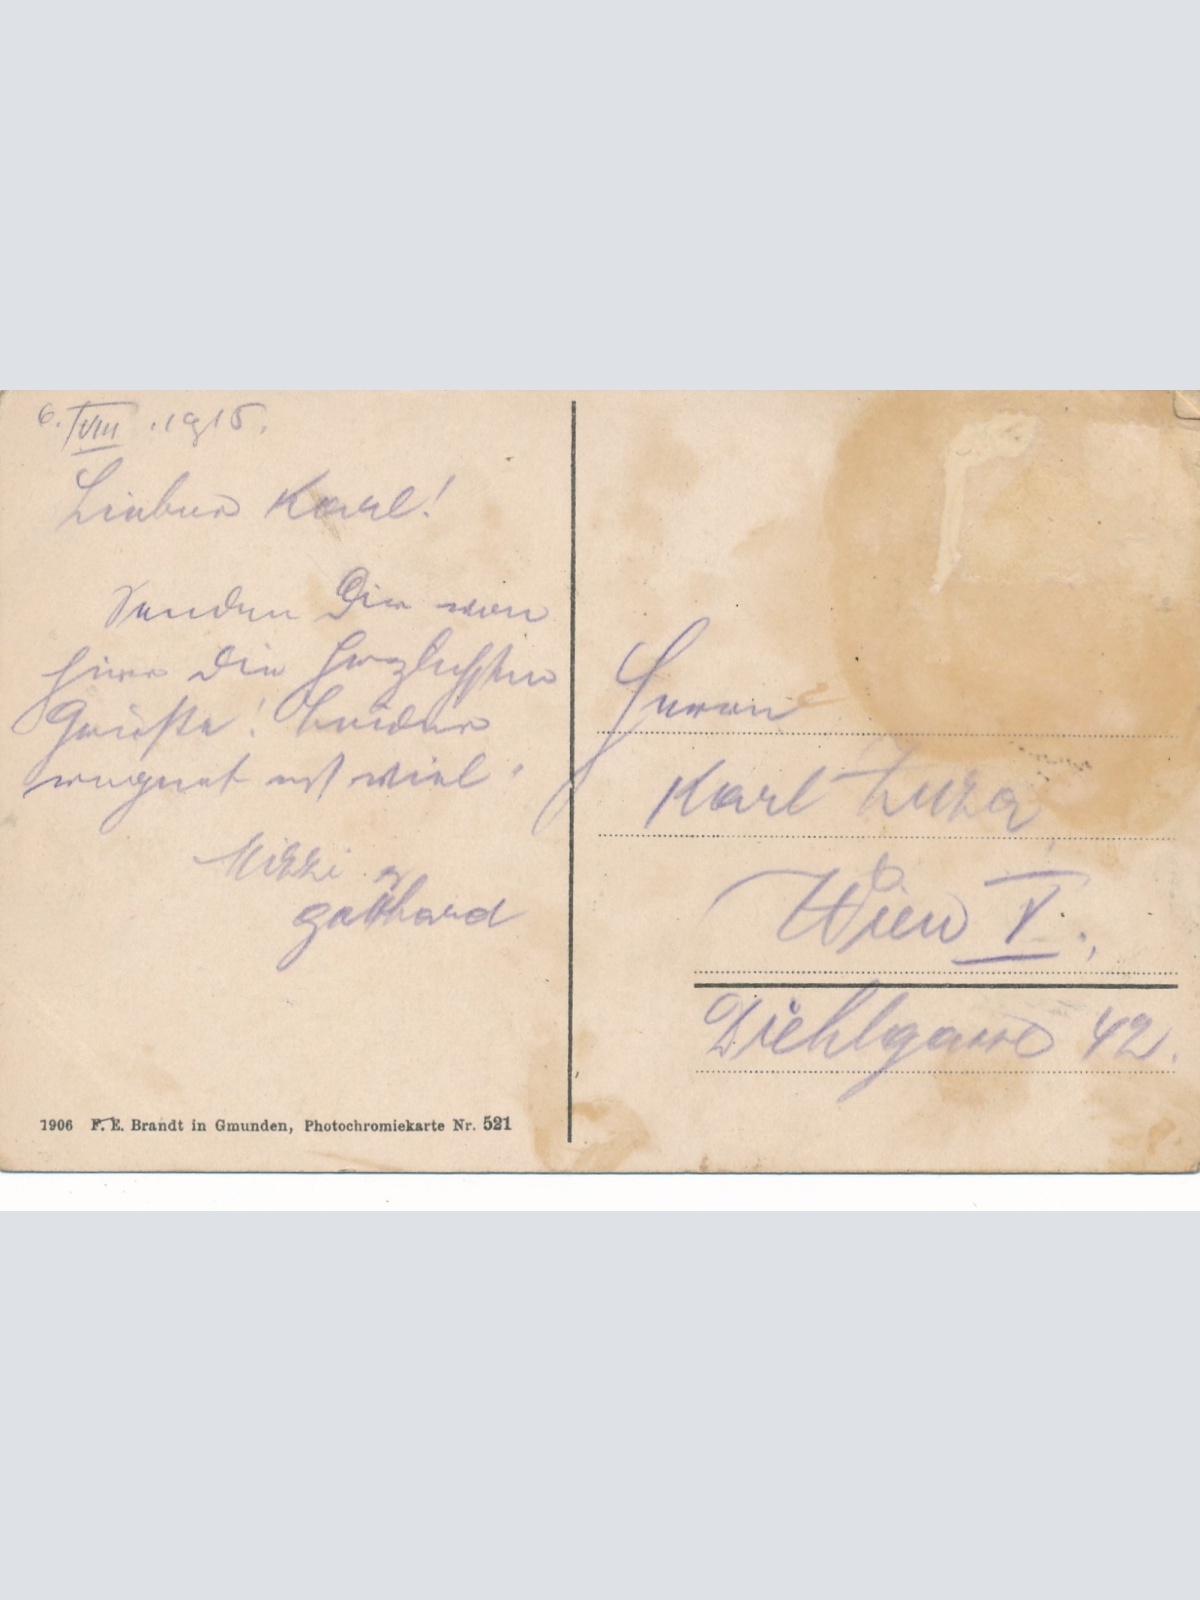 6./VIII .1915.
Lieber Karl!
Senden Dir von
hier die herzlichsten
Grüße! Leider
regnet es viel.
Mizzi
Gotthard
1906 F. E. Brandt in Gmunden, Photochromiekarte Nr. 521
Herrn
Karl
Wien V.,
Diehlgasse 42.